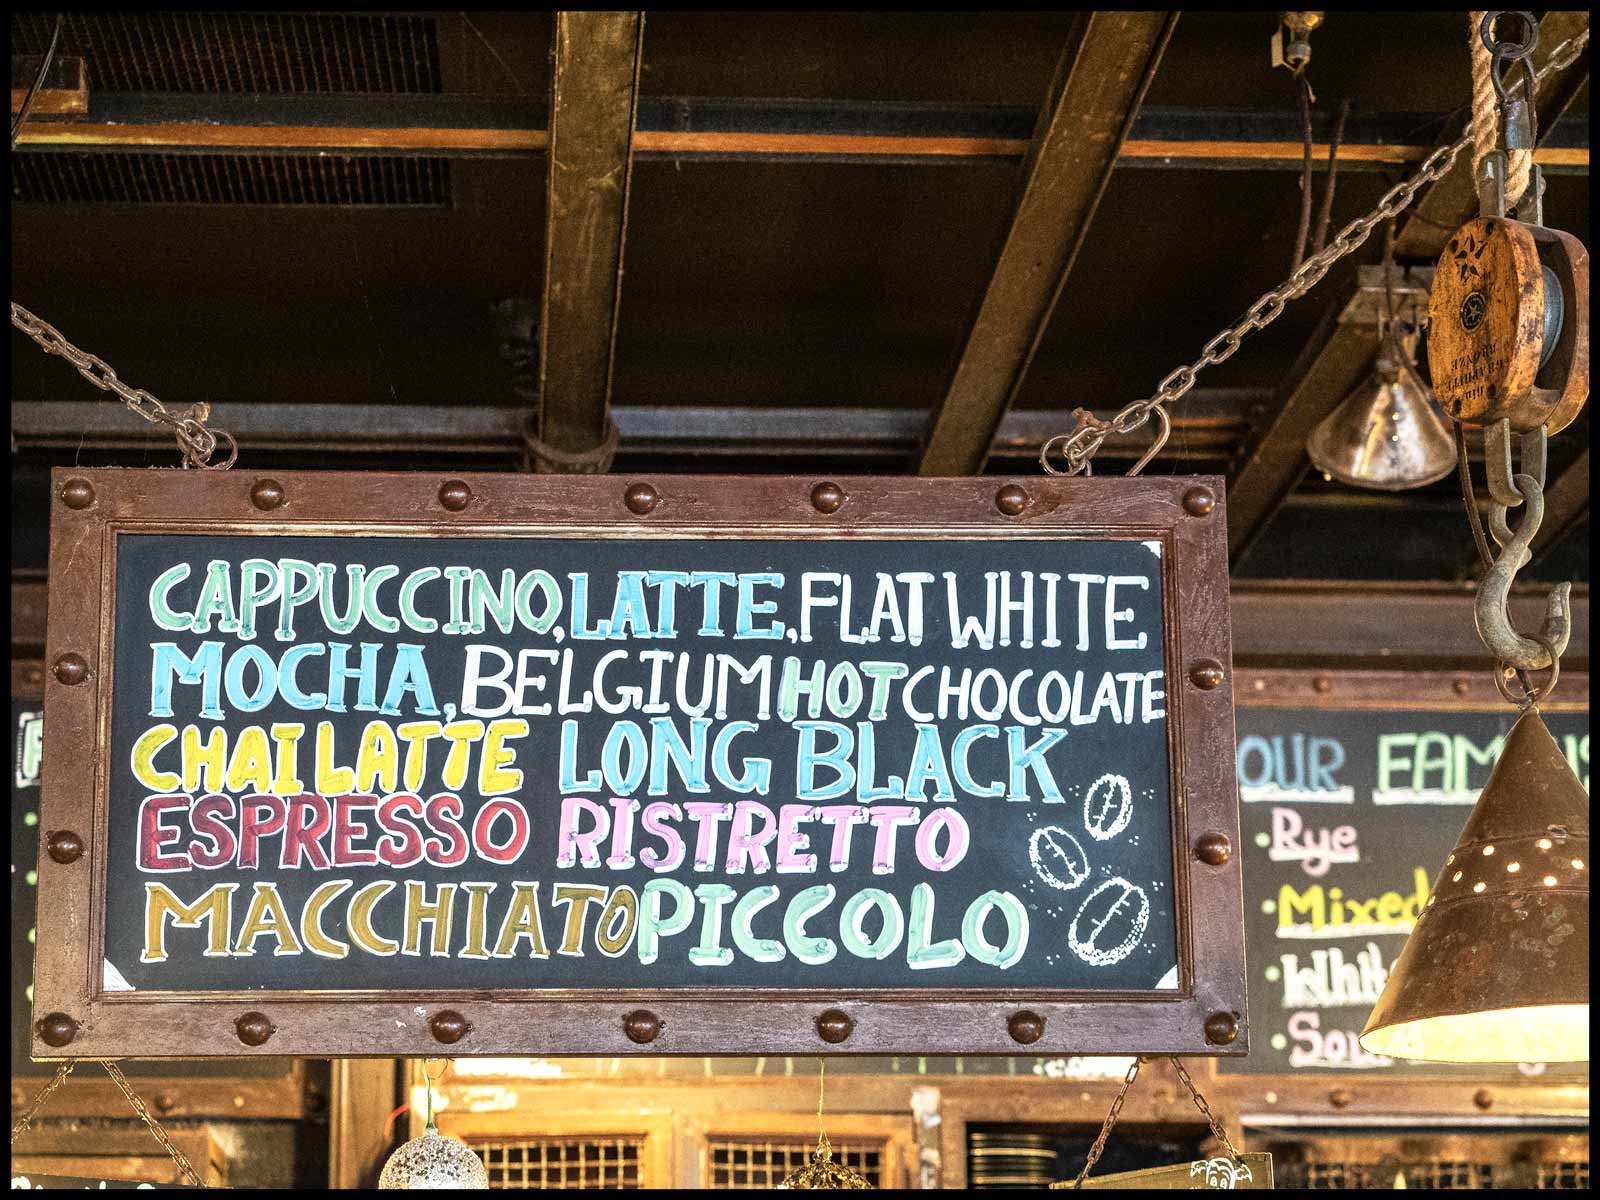 CAPPUCCINO, LATTE, FLAT WHITE
MOCHA, BELGIUM HOT CHOCOLATE
CHAI LATTE LONG BLACK
ESPRESSO RISTRETTO
MACCHIATO PICCOLO
OUR
Rye
Mixed